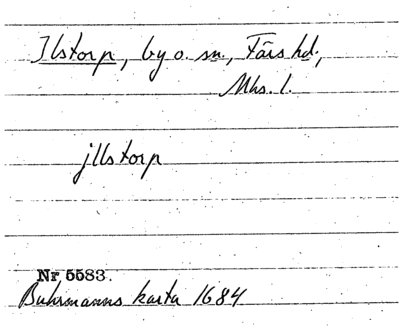 Ilstorp, by o. sn., Färs hd,
Mhs. l.
jllstorp
Nr 5583.
Buhrmanns karta 1684